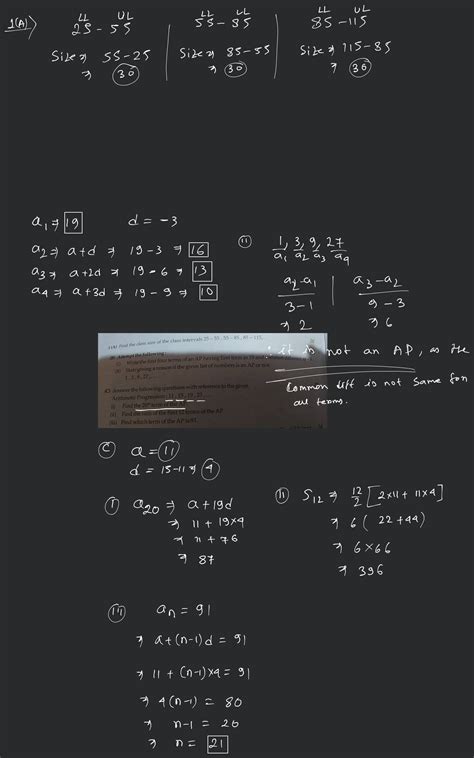 1(A)⇒
LL UL
25 - 55
Size ⇒ 55-25
⇒ 30
LL UL
55 - 85
Size ⇒ 85-55
⇒ 30
LL UL
85 - 115
Size ⇒ 115-85
⇒ 30
a₁ ⇒ 19 d = -3
a₂ ⇒ a+d ⇒ 19-3 ⇒ 16
a₃ ⇒ a+2d ⇒ 19-6 ⇒ 13
a₄ ⇒ a+3d ⇒ 19-9 ⇒ 10
(ii) 1, 3, 9, 27
a₁ a₂ a₃ a₄
a₂-a₁ | a₃-a₂
3-1 | 9-3
⇒ 2 ⇒ 6
∴ it is not an AP, as the
Common diff is not same for
all terms.
Find the class size of the class intervals 25-55, 55-85, 85-115.
(i) Write the first four terms of an AP having first term as 19 and
(ii) Stating reason if the given list of numbers is an AP or not
1, 3, 9, 27
Answer the following questions with reference to the given
Arithmetic Progression: 11, 15, 19, 23
(i) Find the 20th term of the AP
(ii) Find the sum of the first 12 terms of the AP
(iii) Find which term of the AP is 91.
(C) a = 11
d = 15-11 ⇒ 4
(I) a₂₀ ⇒ a+19d
⇒ 11 + 19×4
⇒ 11 + 76
⇒ 87
(II) S₁₂ ⇒ 12/2 [2×11 + 11×4]
⇒ 6( 22+44)
⇒ 6×66
⇒ 396
(III) aₙ = 91
⇒ a+(n-1)d = 91
⇒ 11 + (n-1)×4 = 91
⇒ 4(n-1) = 80
⇒ n-1 = 20
⇒ n = 21